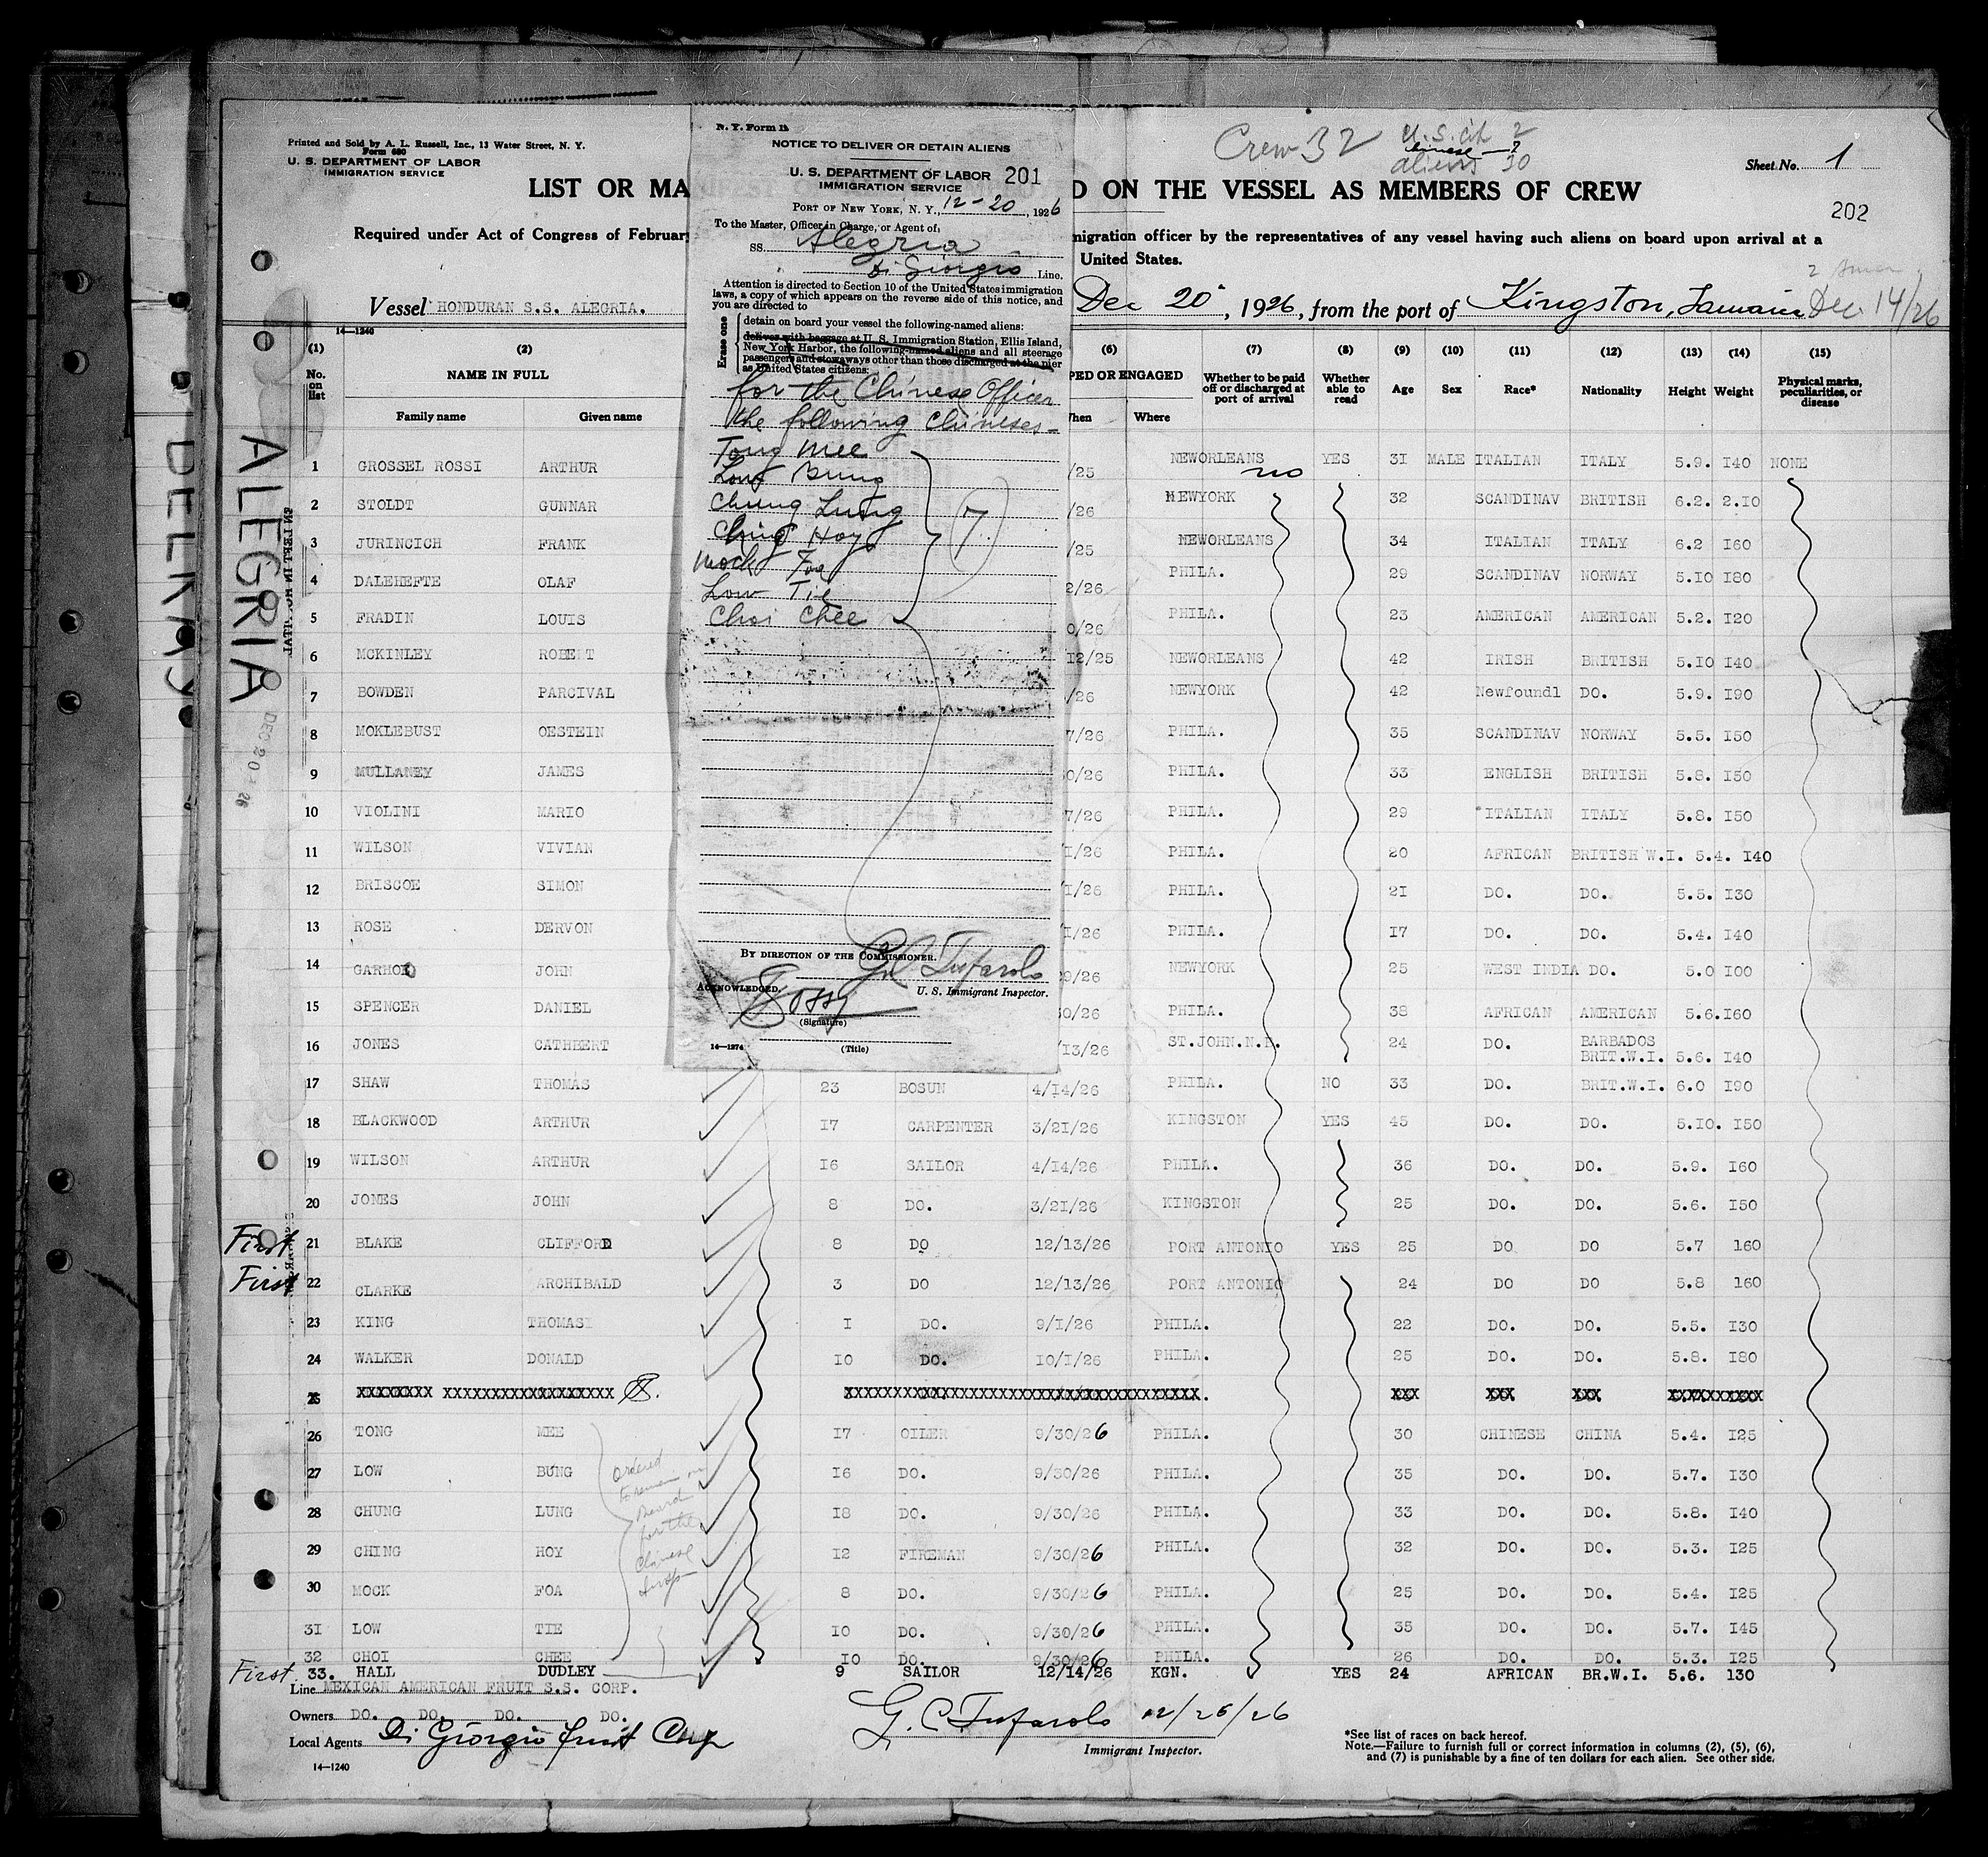 Printed and Sold by A. L. Russell, Inc., 13 Water Street, N. Y.
Form 680
U. S. DEPARTMENT OF LABOR
IMMIGRATION SERVICE
LIST OR MA
D ON THE VESSEL AS MEMBERS OF CREW
Crew 32
U.S. Cit 2
Chinese — 7
aliens 30
Sheet No. 1
202
Required under Act of Congress of Februar
migration officer by the representatives of any vessel having such aliens on board upon arrival at a
United States.
Vessel HONDURAN S.S. ALEGRIA.
Dec 20, 1926, from the port of Kingston, Jamaica Dec. 14/26
N. Y. Form 1
NOTICE TO DELIVER OR DETAIN ALIENS
U. S. DEPARTMENT OF LABOR 201
IMMIGRATION SERVICE
PORT OF NEW YORK, N. Y., 12-20, 1926
To the Master, Officer in Charge, or Agent of,
SS. Alegria
Di Giorgio Line.
Attention is directed to Section 10 of the United States immigration
laws, a copy of which appears on the reverse side of this notice, and
you are directed to
Erase one
detain on board your vessel the following-named aliens:
deliver with baggage at U. S. Immigration Station, Ellis Island,
New York Harbor, the following-named aliens and all steerage
passengers and stowaways other than those discharged at the pier
as United States citizens:
for the Chinese Officer
the following Chineses-
Tong Mee
Low Bung
Chung Lung
Ching Hoy
Mock Foa
Low Tie
Choi Chee
7
BY DIRECTION OF THE COMMISSIONER.
G C Tufarolo
U. S. Immigrant Inspector.
ACKNOWLEDGED,
(Signature)
(Title)
14—1274
14—1240
(1) (2) (6) (7) (8) (9) (10) (11) (12) (13) (14) (15)
No. on list
NAME IN FULL
Family name Given name
PED OR ENGAGED
hen Where
Whether to be paid off or discharged at port of arrival
Whether able to read
Age Sex Race* Nationality Height Weight
Physical marks, peculiarities, or disease
1 GROSSEL ROSSI ARTHUR /25 NEWORLEANS no YES 31 MALE ITALIAN ITALY 5.9. I40 NONE
2 STOLDT GUNNAR /26 NEWYORK 32 SCANDINAV BRITISH 6.2. 2.IO
3 JURINCICH FRANK /25 NEWORLEANS 34 ITALIAN ITALY 6.2 I60
4 DALEHEFTE OLAF 2/26 PHILA. 29 SCANDINAV NORWAY 5.IO I80
5 FRADIN LOUIS 0/26 PHILA. 23 AMERICAN AMERICAN 5.2. I20
6 MCKINLEY ROBERT I2/25 NEWORLEANS 42 IRISH BRITISH 5.IO I40
7 BOWDEN PARCIVAL /26 NEWYORK 42 Newfoundl DO. 5.9. I90
8 MOKLEBUST OESTEIN 7/26 PHILA. 35 SCANDINAV NORWAY 5.5. I50
9 MULLANEY JAMES 0/26 PHILA. 33 ENGLISH BRITISH 5.8. I50
10 VIOLINI MARIO 7/26 PHILA. 29 ITALIAN ITALY 5.8. I50
11 WILSON VIVIAN I/26 PHILA. 20 AFRICAN BRITISH W.I. 5.4. I40
12 BRISCOE SIMON /I/26 PHILA. 2I DO. DO. 5.5. I30
13 ROSE DERVON I/26 PHILA. I7 DO. DO. 5.4. I40
14 JOHN 9/26 NEWYORK 25 WEST INDIA DO. 5.0 I00
15 SPENCER DANIEL 0/26 PHILA. 38 AFRICAN AMERICAN 5.6.I60
16 JONES CATHBERT /I3/26 ST.JOHN.N.B. 24 DO. BARBADOS BRIT.W.I. 5.6. I40
17 SHAW THOMAS 23 BOSUN 4/I4/26 PHILA. NO 33 DO. BRIT.W.I. 6.0 I90
18 BLACKWOOD ARTHUR I7 CARPENTER 3/2I/26 KINGSTON YES 45 DO. DO. 5.IO. I50
19 WILSON ARTHUR I6 SAILOR 4/I4/26 PHILA. 36 DO. DO. 5.9. I60
20 JONES JOHN 8 DO. 3/2I/26 KINGSTON 25 DO. DO. 5.6. I50
First 21 BLAKE CLIFFORD 8 DO 12/13/26 PORT ANTONIO YES 25 DO DO 5.7 160
First 22 CLARKE ARCHIBALD 3 DO 12/13/26 PORT ANTONIO 24 DO DO 5.8 160
23 KING THOMAS I DO. 9/I/26 PHILA. 22 DO. DO. 5.5. I30
24 WALKER DONALD IO DO. IO/I/26 PHILA. 25 DO. DO. 5.8. I80
25
26 TONG MEE I7 OILER 9/30/26 PHILA. 30 CHINESE CHINA 5.4. I25
27 LOW BUNG I6 DO. 9/30/26 PHILA. 35 DO. DO. 5.7. I30
28 CHUNG LUNG I8 DO. 9/30/26 PHILA. 33 DO. DO. 5.8. I40
29 CHING HOY I2 FIREMAN 9/30/26 PHILA. 32 DO. DO. 5.3. I25
30 MOCK FOA 8 DO. 9/30/26 PHILA. 25 DO. DO. 5.4. I25
31 LOW TIE IO DO. 9/30/26 PHILA. 35 DO. DO. 5.7. I45
32 CHOI CHEE IO DO. 9/30/26 PHILA. 26 DO. DO. 5.3. I25
First 33. HALL DUDLEY 9 SAILOR 12/14/26 KGN. YES 24 AFRICAN BR.W.I. 5.6. 130
ordered
to remain on
board
for the
Chinese
Insp
Line MEXICAN AMERICAN FRUIT S.S. CORP.
Owners DO. DO. DO. DO.
Local Agents Di Giorgio Fruit Corp
G. C. Tufarolo 12/20/26
Immigrant Inspector.
*See list of races on back hereof.
Note.—Failure to furnish full or correct information in columns (2), (5), (6),
and (7) is punishable by a fine of ten dollars for each alien. See other side.
14—1240
ALEGRIA
DEC 20 1926